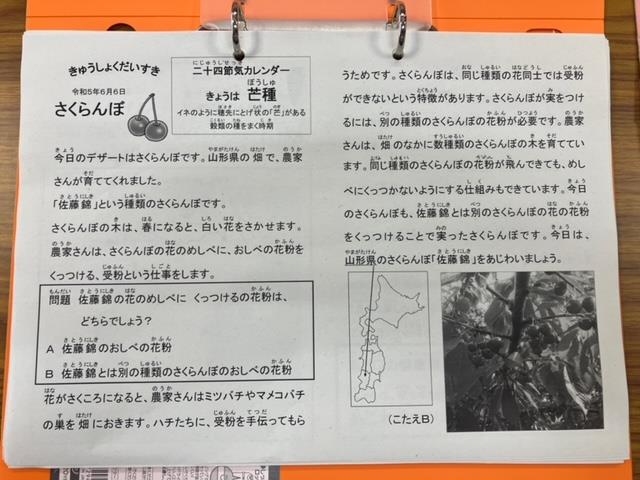 きゅうしょくだいすき
令和5年6月6日
さくらんぼ
二十四節気カレンダー
きょうは 芒種
イネのように穂先にとげ状の「芒」がある
穀類の種をまく時期
今日のデザートはさくらんぼです。山形県の畑で、農家
さんが育ててくれました。
「佐藤錦」という種類のさくらんぼです。
さくらんぼの木は、春になると、白い花をさかせます。
農家さんは、さくらんぼの花のめしべに、おしべの花粉を
くっつける、受粉という仕事をします。
問題 佐藤錦の花のめしべに くっつけるの花粉は、
どちらでしょう？
A 佐藤錦のおしべの花粉
B 佐藤錦とは別の種類のさくらんぼのおしべの花粉
花がさくころになると、農家さんはミツバチやマメコバチ
の巣を畑におきます。ハチたちに、受粉を手伝ってもら
うためです。さくらんぼは、同じ種類の花同士では受粉
ができないという特徴があります。さくらんぼが実をつけ
るには、別の種類のさくらんぼの花粉が必要です。農家
さんは、畑のなかに数種類のさくらんぼの木を育ててい
ます。同じ種類のさくらんぼの花粉が飛んできても、めし
べにくっつかないようにする仕組みもできています。今日
のさくらんぼも、佐藤錦とは別のさくらんぼの花の花粉
をくっつけることで実ったさくらんぼです。今日は、
山形県のさくらんぼ「佐藤錦」をあじわいましょう。
（こたえB）